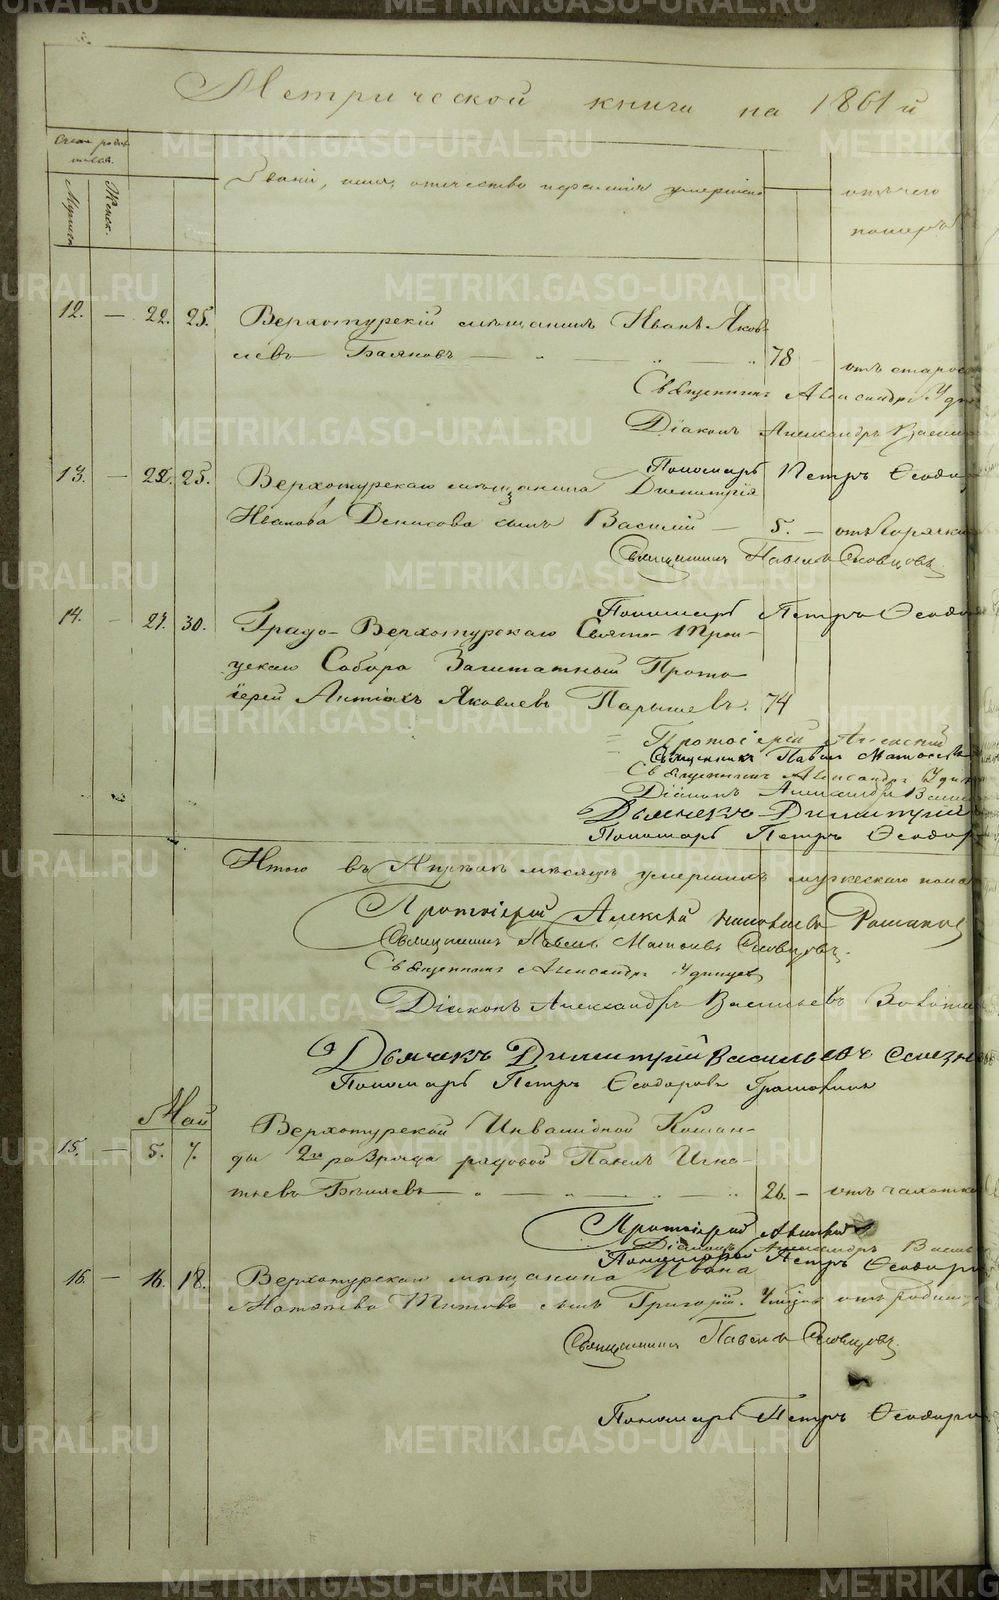 Метрической книги на 1861й
Счетъ родив
шихся.
Мужеск.
Женск.
Званіе, имя, отчество и фамилія умершаго
отъ чего
померъ
12. — 22. 25. Верхотурскій мѣщанинъ Иванъ Яков-
левъ Баляновъ — 78 — отъ старос
Священникъ Александръ Удин
Діаконъ Александръ Васил
Пономарь Петръ Ѳеодор
13. — 22. 25. Верхотурскаго мѣщанина Димитрія
Иванова Денисова сынъ Василій — 5. — отъ горячки
Священникъ Павелъ Словцовъ.
Пономарь Петръ Ѳеодор
14. — 27. 30. Градо-Верхотурскаго Свято-Трои-
цкаго Собора Заштатный Прото-
іерей Антіохъ Яковлевъ Парышевъ. 74
Протоіерей Алексій
Священникъ Павелъ Матѳіевъ
Священникъ Александръ Удин
Діаконъ Александръ Васил
Дьячекъ Димитрій
Пономарь Петръ Ѳеодор
Итого въ Апрѣлѣ мѣсяцѣ умершихъ мужескаго пола
Протоіерей Алексѣй Романов
Священникъ Павелъ Матѳіевъ Словцовъ.
Священникъ Александръ Удинцев
Діаконъ Александръ Васильевъ
Дьячекъ Димитрій Васильевъ Селезнев
Пономарь Петръ Ѳеодоровъ
Май
15. — 5. 7. Верхотурской Инвалидной Коман-
ды 2го разряда рядовой Павелъ Игна-
тьевъ Бѣляевъ — 26 — отъ чахотки
Протоіерей Алексій
Діаконъ Александръ Васил
Пономарь Петръ Ѳеодор
16 — 16. 18. Верхотурскаго мѣщанина Ивана
Матѳіева Титова сынъ Григорій. отъ родим
Священникъ Павелъ Словцовъ.
Пономарь Петръ Ѳеодоро
METRIKI.GASO-URAL.RU